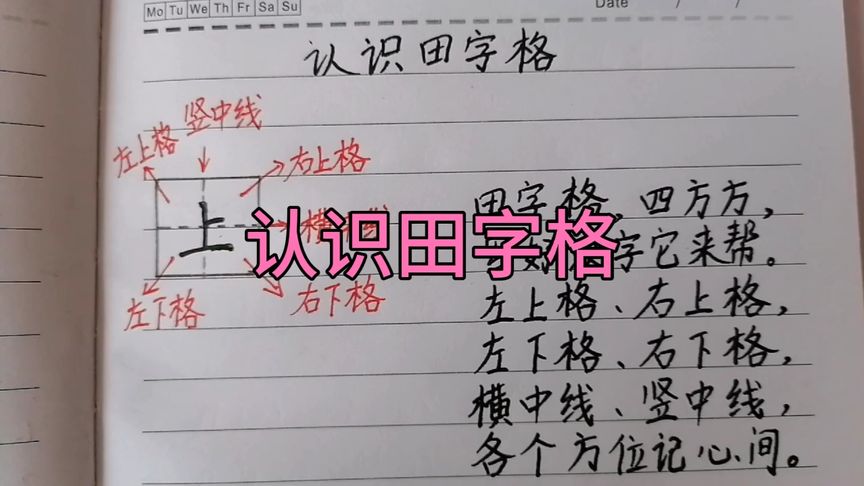 Mo Tu We Th Fr Sa Su
Date / /
认识田字格
竖中线
左上格
右上格
上
横
左下格
右下格
认识田字格
田字格,四方方,
字它来帮。
左上格、右上格,
左下格、右下格,
横中线、竖中线,
各个方位记心间。